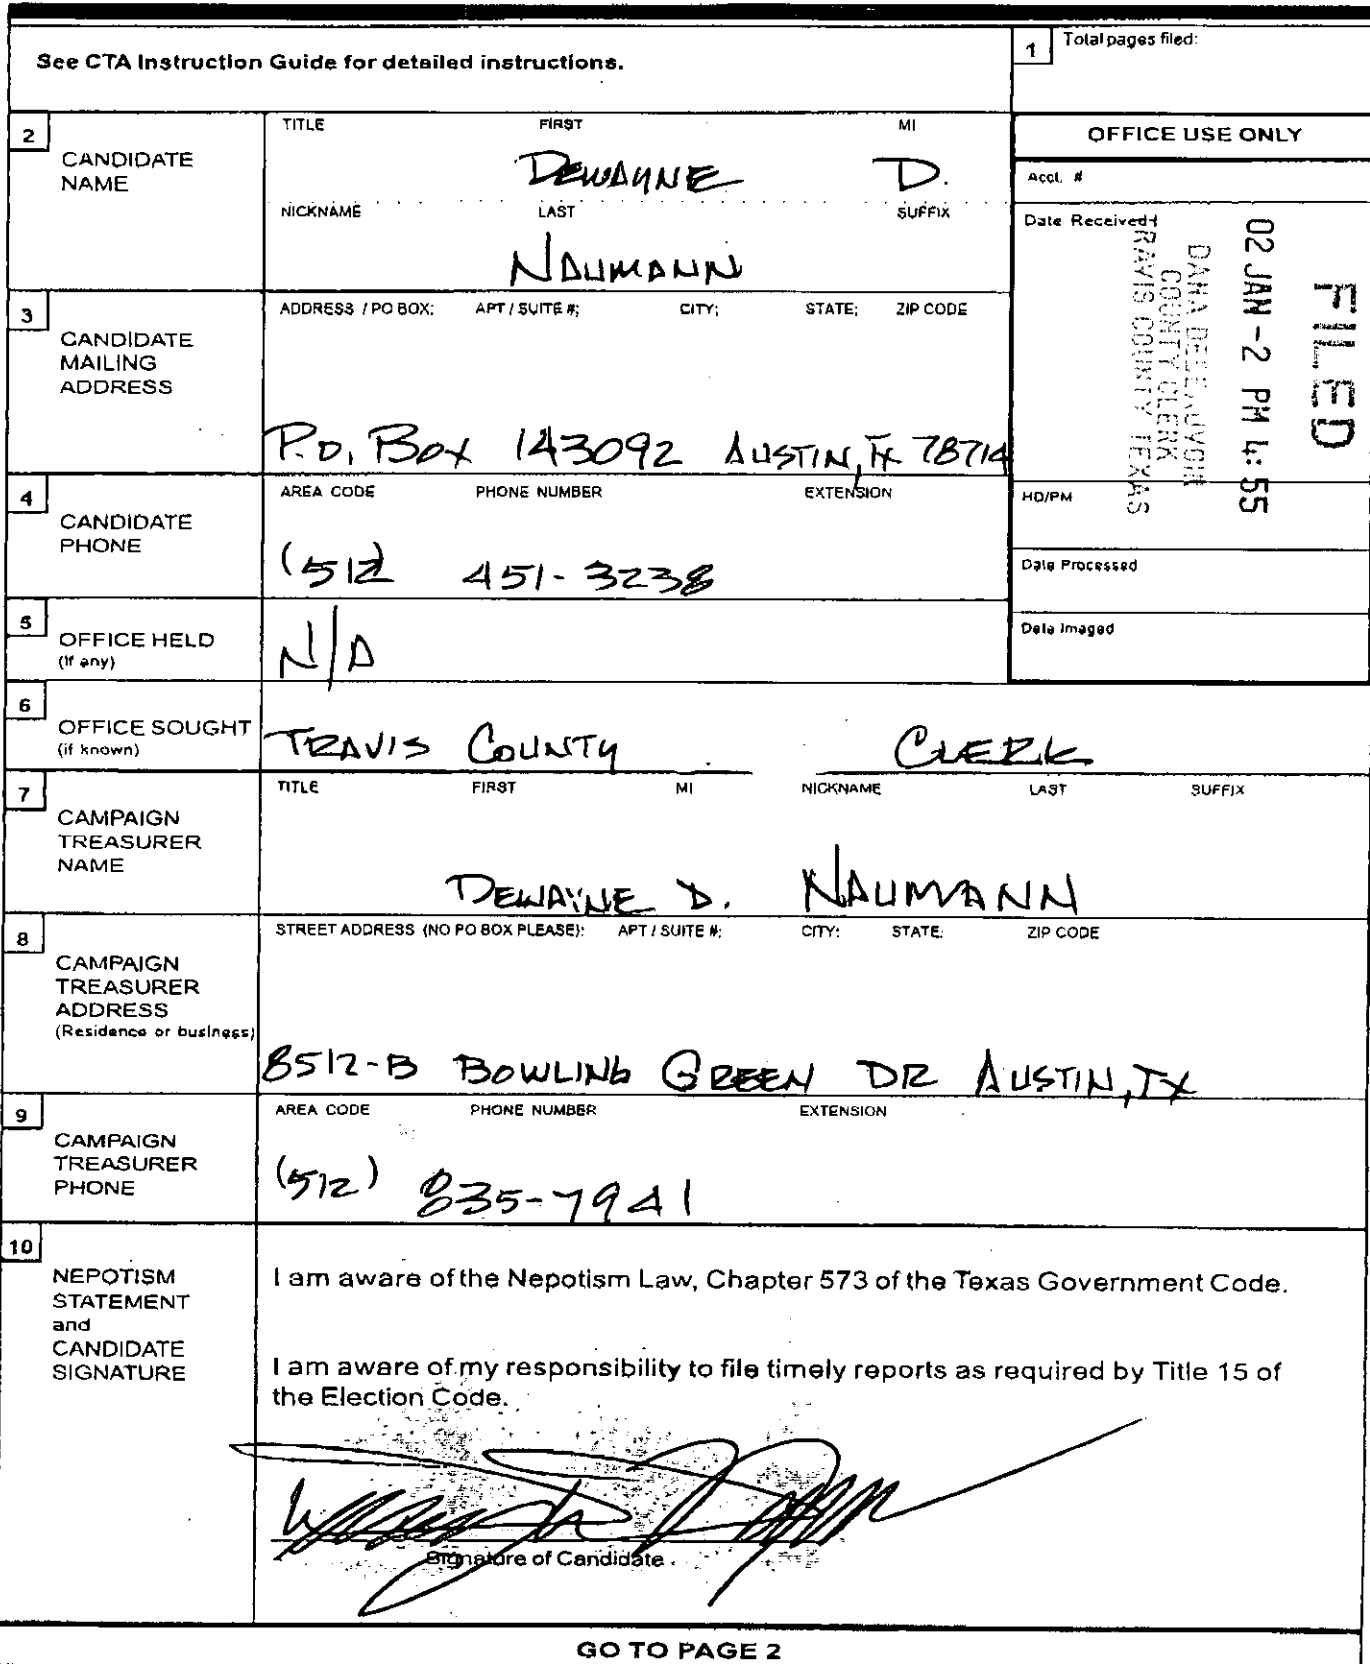 See CTA Instruction Guide for detailed instructions.
1 Total pages filed:
2 CANDIDATE NAME
TITLE FIRST MI
DEWAYNE D.
NICKNAME LAST SUFFIX
NAUMANN
OFFICE USE ONLY
Acct. #
Date Received
FILED
02 JAN -2 PM 4:55
DANA DEBEAUVOIR
COUNTY CLERK
TRAVIS COUNTY TEXAS
HD/PM
Date Processed
Date Imaged
3 CANDIDATE MAILING ADDRESS
ADDRESS / PO BOX; APT / SUITE #; CITY; STATE; ZIP CODE
P.O. Box 143092 AUSTIN, TX 78714
4 CANDIDATE PHONE
AREA CODE PHONE NUMBER EXTENSION
(512) 451-3238
5 OFFICE HELD
(if any)
N/A
6 OFFICE SOUGHT
(if known)
TRAVIS COUNTY CLERK
7 CAMPAIGN TREASURER NAME
TITLE FIRST MI NICKNAME LAST SUFFIX
DEWAYNE D. NAUMANN
8 CAMPAIGN TREASURER ADDRESS
(Residence or business)
STREET ADDRESS (NO PO BOX PLEASE); APT / SUITE #; CITY; STATE; ZIP CODE
8512-B BOWLING GREEN DR AUSTIN, TX
9 CAMPAIGN TREASURER PHONE
AREA CODE PHONE NUMBER EXTENSION
(512) 835-7941
10 NEPOTISM STATEMENT and CANDIDATE SIGNATURE
I am aware of the Nepotism Law, Chapter 573 of the Texas Government Code.
I am aware of my responsibility to file timely reports as required by Title 15 of
the Election Code.
Signature of Candidate
GO TO PAGE 2